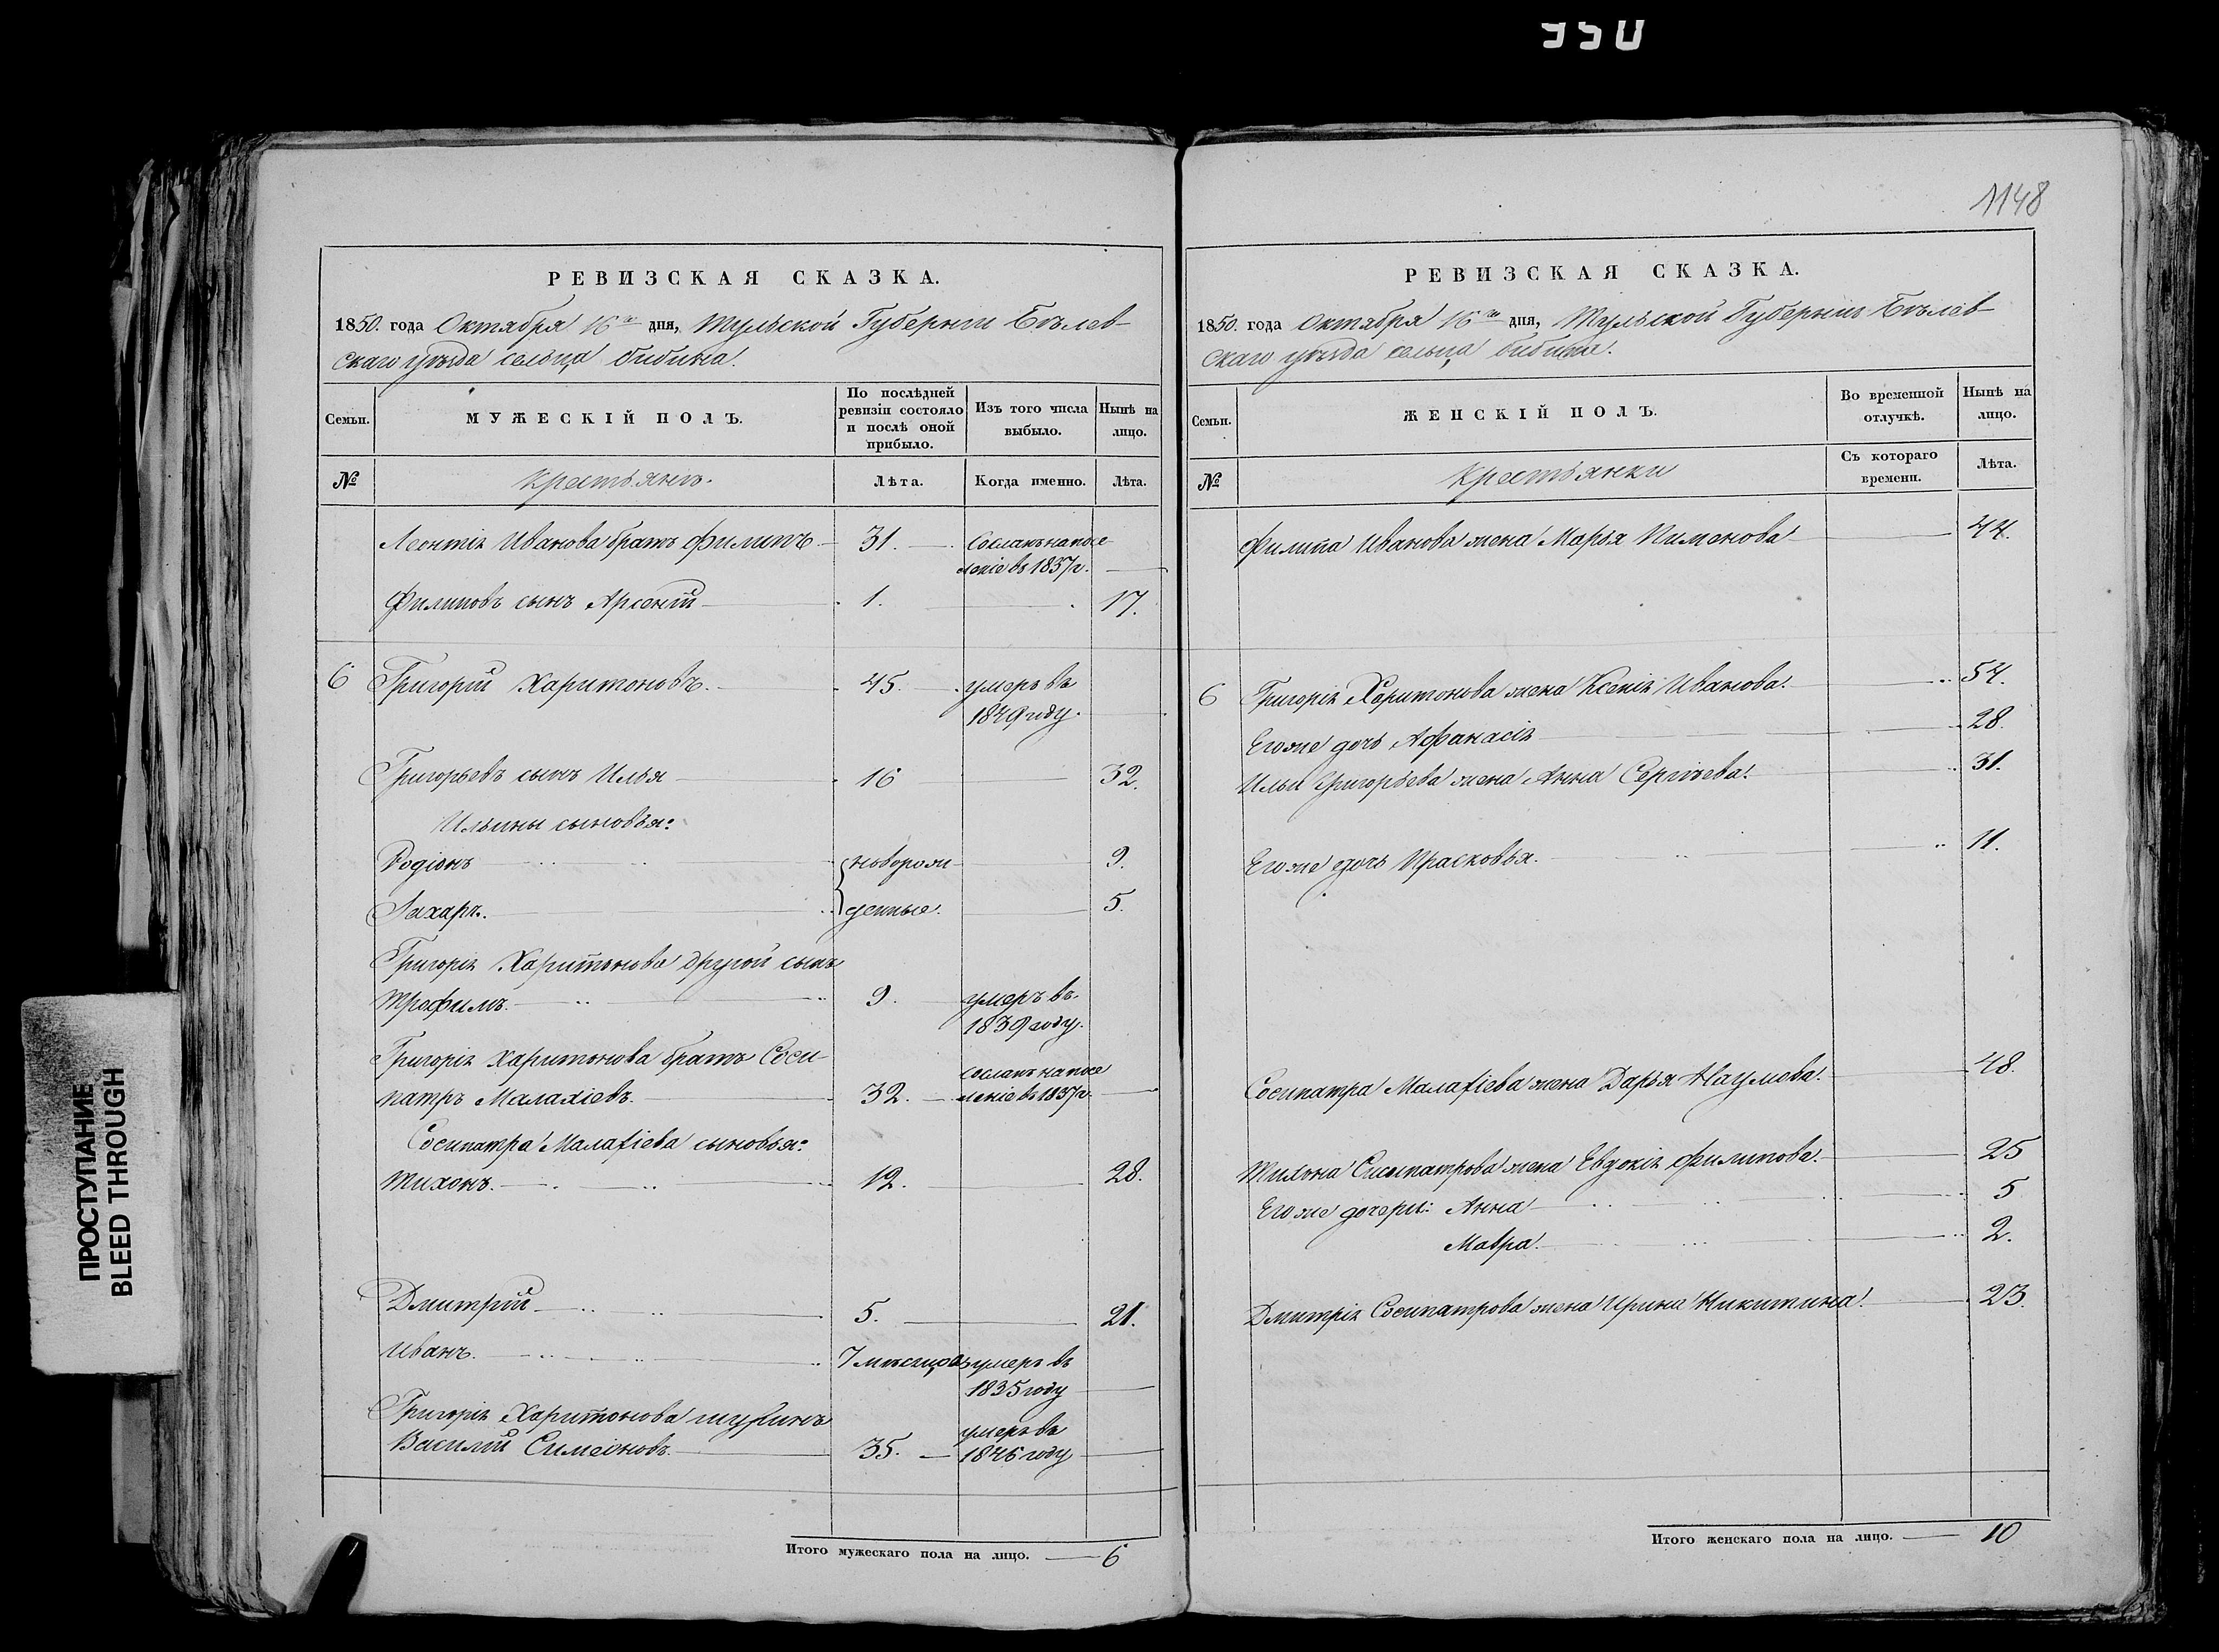 950
1148
РЕВИЗСКАЯ СКАЗКА.
1850. года Октября 16го дня, Тульской Губерніи Бѣлев-
скаго уѣзда сельца Бибина.
Семьи.
МУЖЕСКІЙ ПОЛЪ.
По послѣдней ревизіи состояло и послѣ оной прибыло.
Изъ того числа выбыло.
Нынѣ на лицо.
№
Крестьянъ.
Лѣта.
Когда именно.
Лѣта.
Леонтія Иванова братъ Филипъ 31. Сосланъ на посе-
леніе въ 1837г.
Филиповъ сынъ Арсентій 1. 17.
6 Григорій Харитоновъ. 45. умеръ въ
1849 году.
Григорьевъ сынъ Илья 16 32.
Ильины сыновья:
Родіонъ новорож- 9.
Захаръ. денные. 5.
Григорія Харитонова другой сынъ
Трофимъ. 9. умеръ въ
1839 году.
Григорія Харитонова братъ Соси-
патръ Малахіевъ. 32. сосланъ на посе
леніе въ 1837г.
Сосипатра Малахіева сыновья:
Тихонъ. 12. 28.
Дмитрій 5. 21.
Иванъ. 7 мѣсяцовъ умеръ въ
1835 году
Григорія Харитонова шуринъ
Василій Симеоновъ. 35. умеръ въ
1846 году
Итого мужескаго пола на лицо. 6
РЕВИЗСКАЯ СКАЗКА.
1850. года Октября 16го дня, Тульской Губерніи Бѣлев-
скаго уѣзда сельца Бибина.
Семьи.
ЖЕНСКІЙ ПОЛЪ.
Во временной отлучкѣ.
Нынѣ на лицо.
№
Крестьянки
Съ котораго времени.
Лѣта.
Филипа Иванова жена Марья Пименова 44.
6 Григорія Харитонова жена Ксенія Иванова. 54.
Его же дочь Афанасія 28.
Ильи Григорьева жена Анна Сергѣева. 31.
Его же дочь Прасковья. 11.
Сосипатра Малахіева жена Дарья Наумова. 48.
Тихона Сосипатрова жена Евдокія Филипова. 25
Его же дочери: Анна 5
Мавра. 2.
Дмитрія Сосипатрова жена Ирина Никитина. 23.
Итого женскаго пола на лицо. 10
ПРОСТУПАНИЕ
BLEED THROUGH